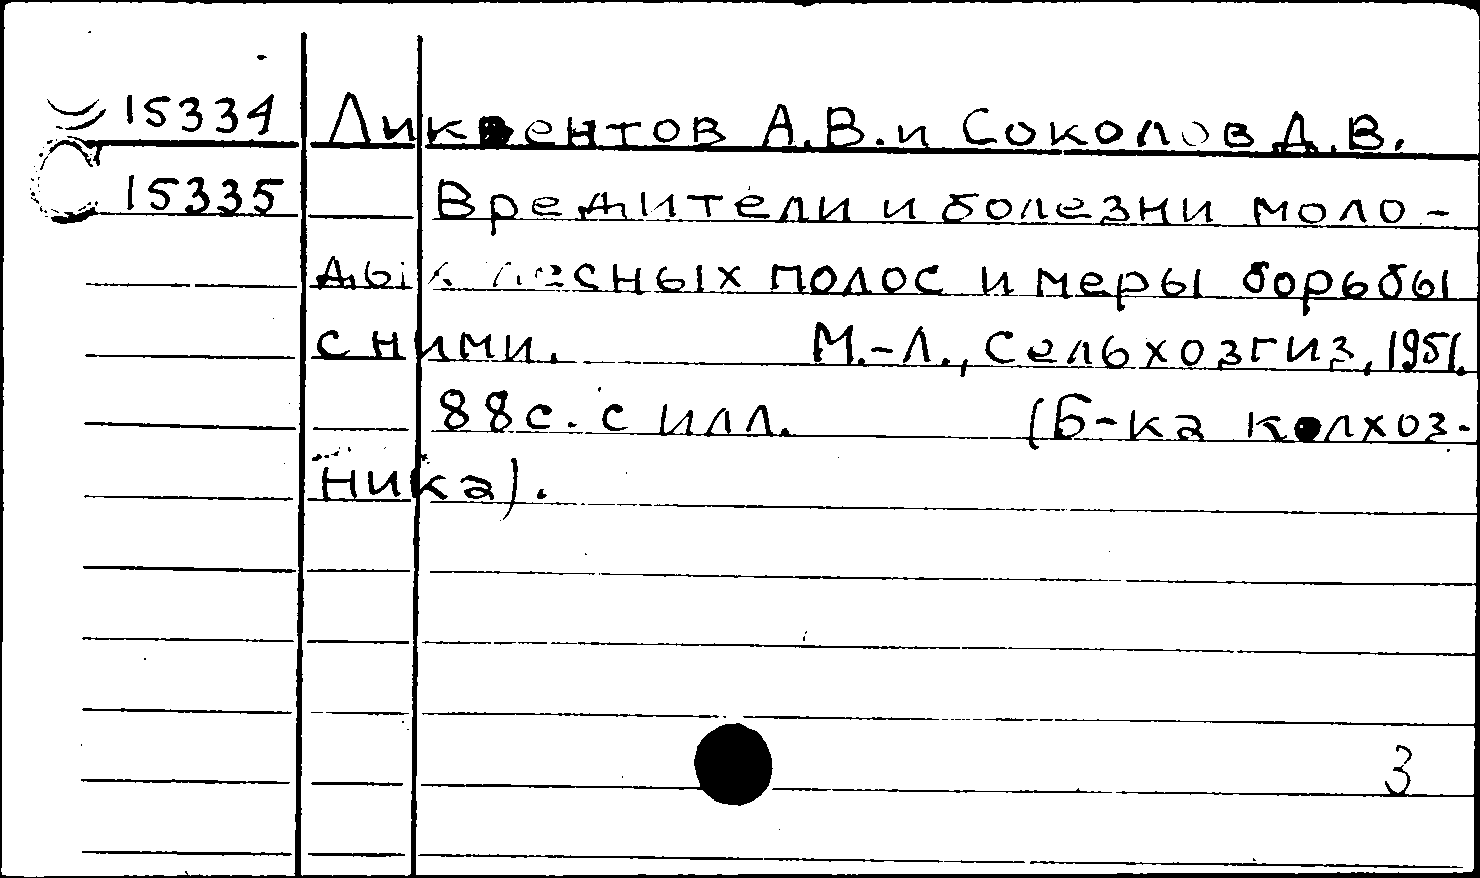 15334 Ликвентов А.В. и Соколов Д.В.
15335 Вредители и болезни моло-
дых лесных полос и меры борьбы
с ними. М.-Л., Сельхозгиз, 1951.
88с. с илл. (Б-ка колхоз-
ника).
3